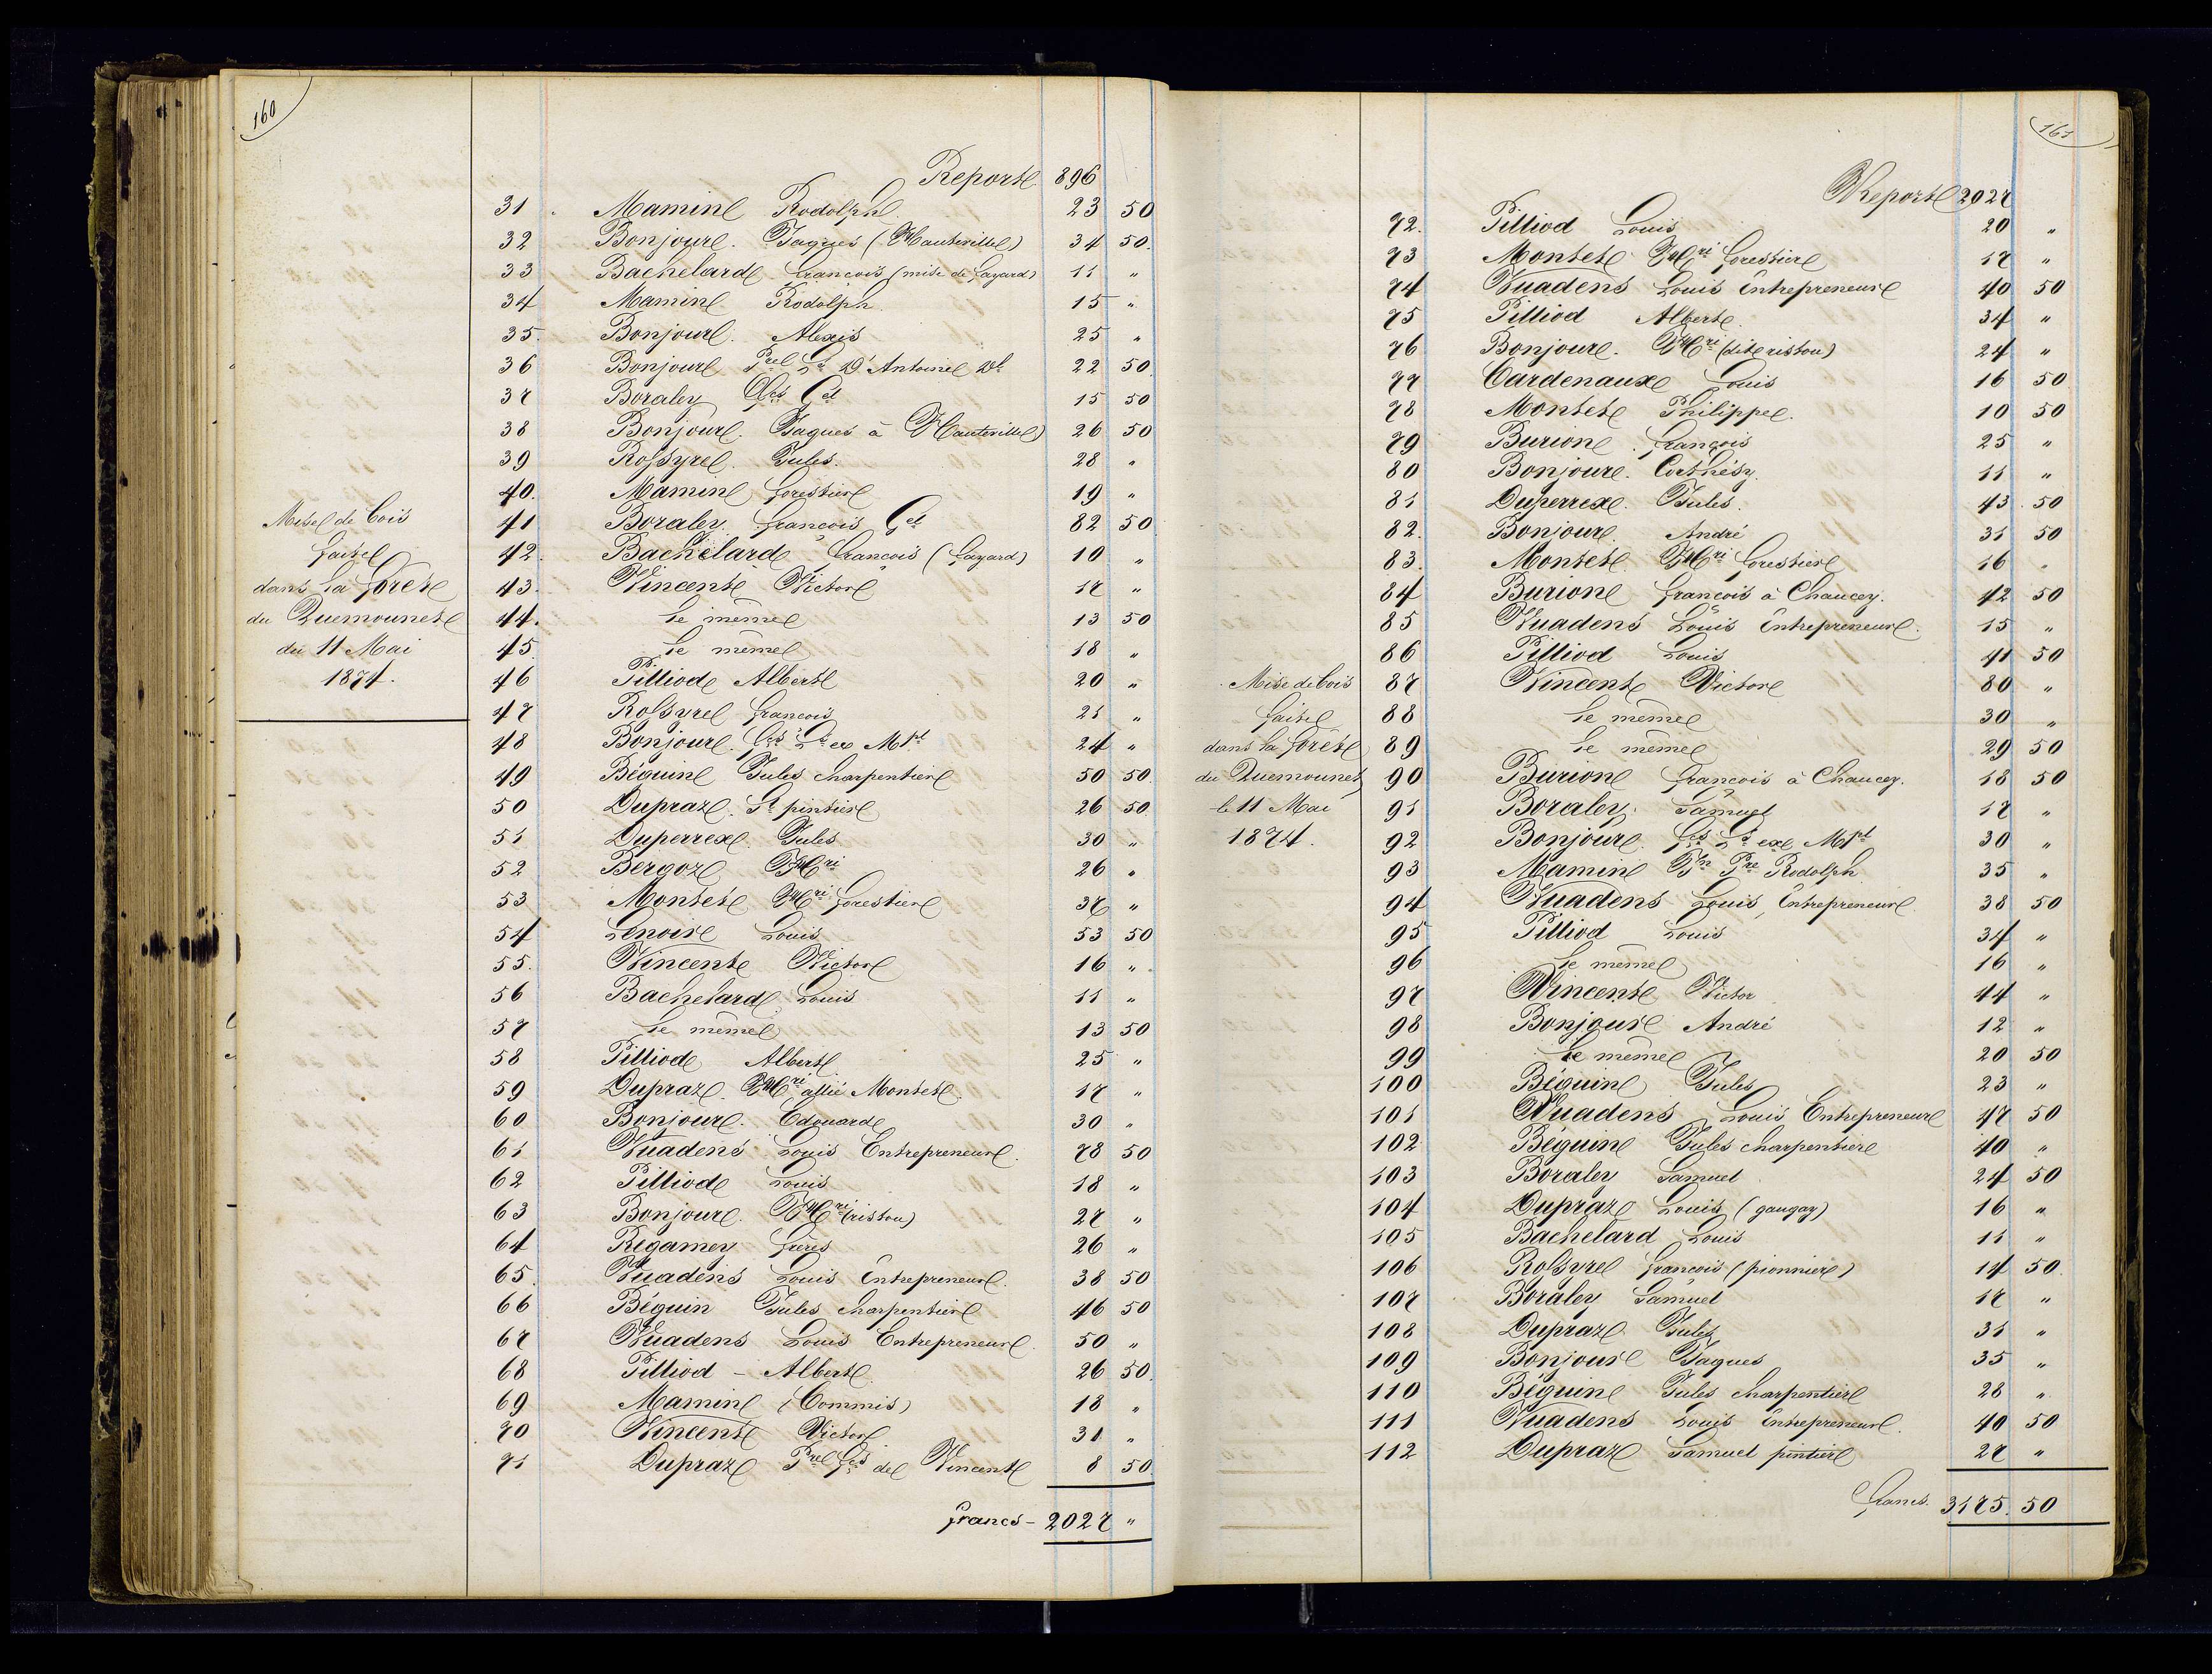 160
Report 896
31 Mamin Rodolph 23 50
32 Bonjour Jaques (Hauteville) 34 50
33 Bachelard François (mise de fayard) 11 "
34 Mamin Rodolph 15 "
35 Bonjour Alexis 25 "
36 Bonjour Ls D' Antoine Dl 22 50
37 Boraley Fçs Cel 15 50
38 Bonjour Jaques à Hauteville) 26 50
39 Rossyre Jules 28 "
40 Mamin forestier 19 "
41 Boraley François Cel 82 50
42 Bachelard François (fayard) 10 "
43 Vincent Victor 17 "
44 Le même 13 50
45 Le même 18 "
46 Pilliod Albert 20 "
47 Rossyre François 21 "
48 Bonjour Fçs Ls ex Mpl 24 "
49 Béguin Jules charpentier 50 50
50 Dupraz Sl pintier 26 50
51 Duperrex Jules 30 "
52 Bergoz Hri 26 "
53 Montet JHri forestier 37 "
54 Lenoir Louis 53 50
55 Vincent Victor 16 "
56 Bachelard Louis 11 "
57 Le même 13 50
58 Pilliod Albert 25 "
59 Dupraz JHri allié Montet 17 "
60 Bonjour Edouard 30 "
61 Vuadens Louis Entrepreneur 78 50
62 Pilliod Louis 18 "
63 Bonjour JHri (riston) 27 "
64 Régamey frères 26 "
65 Vuadens Louis Entrepreneur 38 50
66 Béguin Jules charpentier 46 50
67 Vuadens Louis Entrepreneur 50 "
68 Pilliod - Albert 26 50
69 Mamin (Commis) 18 "
70 Vincent Victor 31 "
71 Dupraz Fçs de Vincent 8 50
francs - 2027 "
Mise de bois
faite
dans la forêt
du Quemounet
du 11 Mai
1874.
161
Report 2027
72 Pilliod Louis 20 "
73 Montet JHri forestier 17 "
74 Vuadens Louis Entrepreneur 40 50
75 Pilliod Albert 34 "
76 Bonjour JHri (dit riston) 24 "
77 Cardenaux Louis 16 50
78 Montet Philippe 10 50
79 Burion François 25 "
80 Bonjour Corthésy 11 "
81 Duperrex Jules 43 50
82 Bonjour André 31 50
83 Montet JHri forestier 16 "
84 Burion François à Chaucey 42 50
85 Vuadens Louis Entrepreneur 15 "
86 Pilliod Louis 41 50
87 Vincent Victor 80 "
88 Le même 30 "
89 Le même 29 50
90 Burion François à Chaucey 18 50
91 Boraley Samuel 17 "
92 Bonjour Fçs Ls ex Mpl 30 "
93 Mamin Jn Pre Rodolph 35 "
94 Vuadens Louis, Entrepreneur 38 50
95 Pilliod Louis 34 "
96 Le même 16 "
97 Vincent Victor 44 "
98 Bonjour André 12 "
99 Le même 20 50
100 Béguin Jules 23 "
101 Vuadens Louis Entrepreneur 47 50
102 Béguin Jules charpentier 40 "
103 Boraley Samuel 24 50
104 Dupraz Louis (gaugay) 16 "
105 Bachelard Louis 11 "
106 Rossyre François (pionnier) 14 50
107 Boraley Samuel 17 "
108 Dupraz Jules 31 "
109 Bonjour Jaques 35 "
110 Béguin Jules charpentier 28 "
111 Vuadens Louis Entrepreneur 40 50
112 Dupraz Samuel pintier 27 "
francs 3175. 50
Mise de bois
faite
dans la forêt
du Quemounet
le 11 Mai
1874.